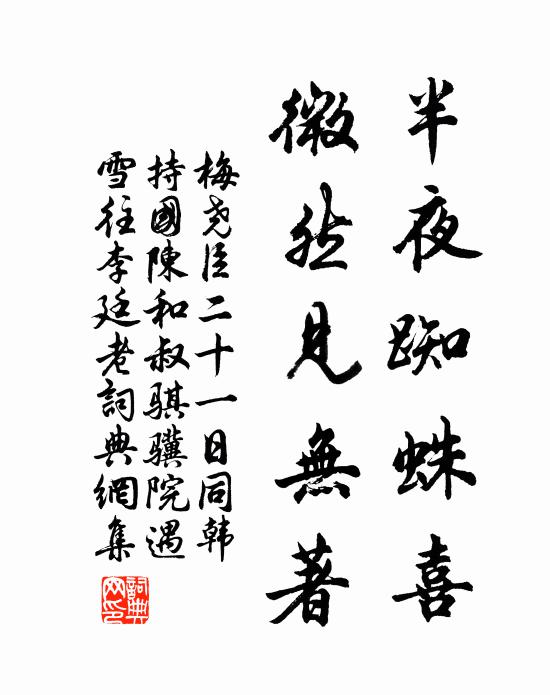 半夜踟蛛喜
微然見無著
梅尧臣二十一日同韩
持國陳和叔骐骥院遇
雪往李廷老詞典網集
詞典网印